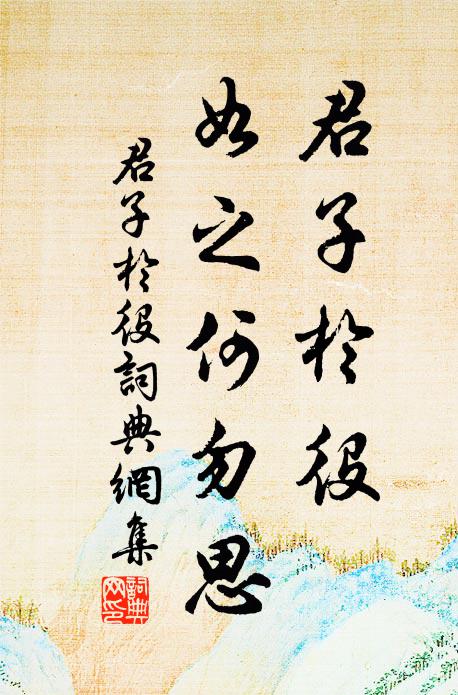 君子於役
如之何勿思
君子於役詞典網集
詞典